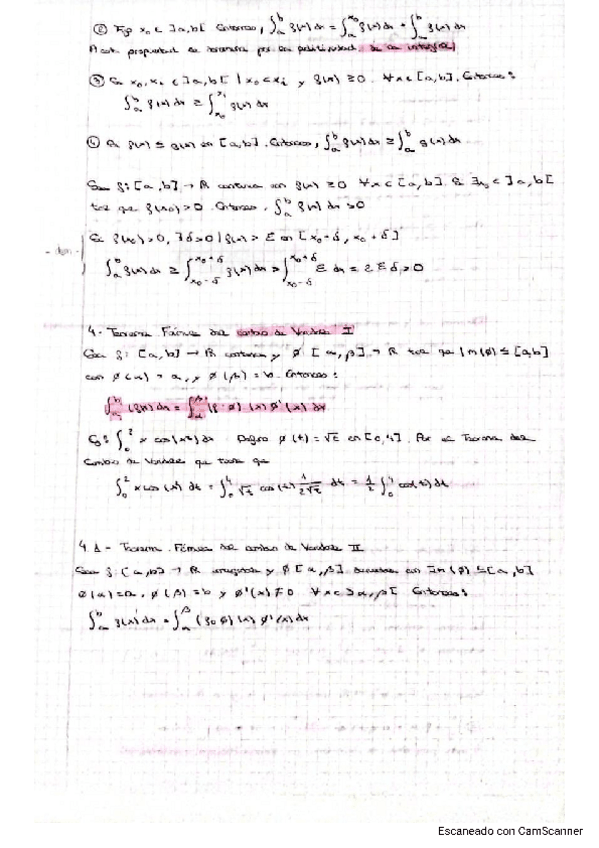 ② Fijo x₀ ∈ ]a,b[ Entonces, ∫ₐᵇ f(x) dx = ∫ₐˣ⁰ f(x) dx + ∫ₓ₀ᵇ f(x) dx
A esta propiedad se denomina por la aditividad de la integral
③ Sea x₀, x₁ ∈ ]a,b[ | x₀ < x₁ y f(x) ≥ 0 ∀x ∈ [a,b]. Entonces:
∫ₐᵇ f(x) dx ≥ ∫ₓ₀ˣ¹ f(x) dx
④ Si f(x) ≤ g(x) en [a,b]. Entonces, ∫ₐᵇ f(x) dx ≥ ∫ₐᵇ g(x) dx
Sea f: [a,b] → ℝ continua con f(x) ≥ 0 ∀x ∈ [a,b]. Si ∃x₀ ∈ ]a,b[
tal que f(x₀) > 0. Entonces, ∫ₐᵇ f(x) dx > 0
- dem. - Si f(x₀) > 0, ∃δ > 0 | f(x) > ε en [x₀-δ, x₀+δ]
∫ₐᵇ f(x) dx ≥ ∫ₓ₀₋δˣ⁰⁺δ f(x) dx > ∫ₓ₀₋δˣ⁰⁺δ ε dx = 2εδ > 0
4.- Teorema. Fórmula del cambio de Variable I
Sea f: [a,b] → ℝ continua y ø [α,β] → ℝ tal que Im(ø) ⊆ [a,b]
con ø(α) = a, y ø(β) = b. Entonces:
∫ₐᵇ f(x) dx = ∫_α^β (f∘ø)(x) ø'(x) dx
Ej: ∫₀² x cos(x²) dx. Defino ø(t) = √t en [0,4]. Por el Teorema del
cambio de Variable que tiene que
∫₀² x cos(x²) dt = ∫₀⁴ √t cos(t) 1/(2√t) dt = 1/2 ∫₀⁴ cos(t) dt
4.1 - Teorema. Fórmula del cambio de Variable II
Sea f: [a,b] → ℝ integrable y ø [α,β] derivable con Im(ø) ⊆ [a,b]
ø(α) = a, ø(β) = b y ø'(x) ≠ 0 ∀x ∈ ]α,β[ Entonces:
∫ₐᵇ f(x) dx = ∫_α^β (f∘ø)(x) ø'(x) dx
Escaneado con CamScanner